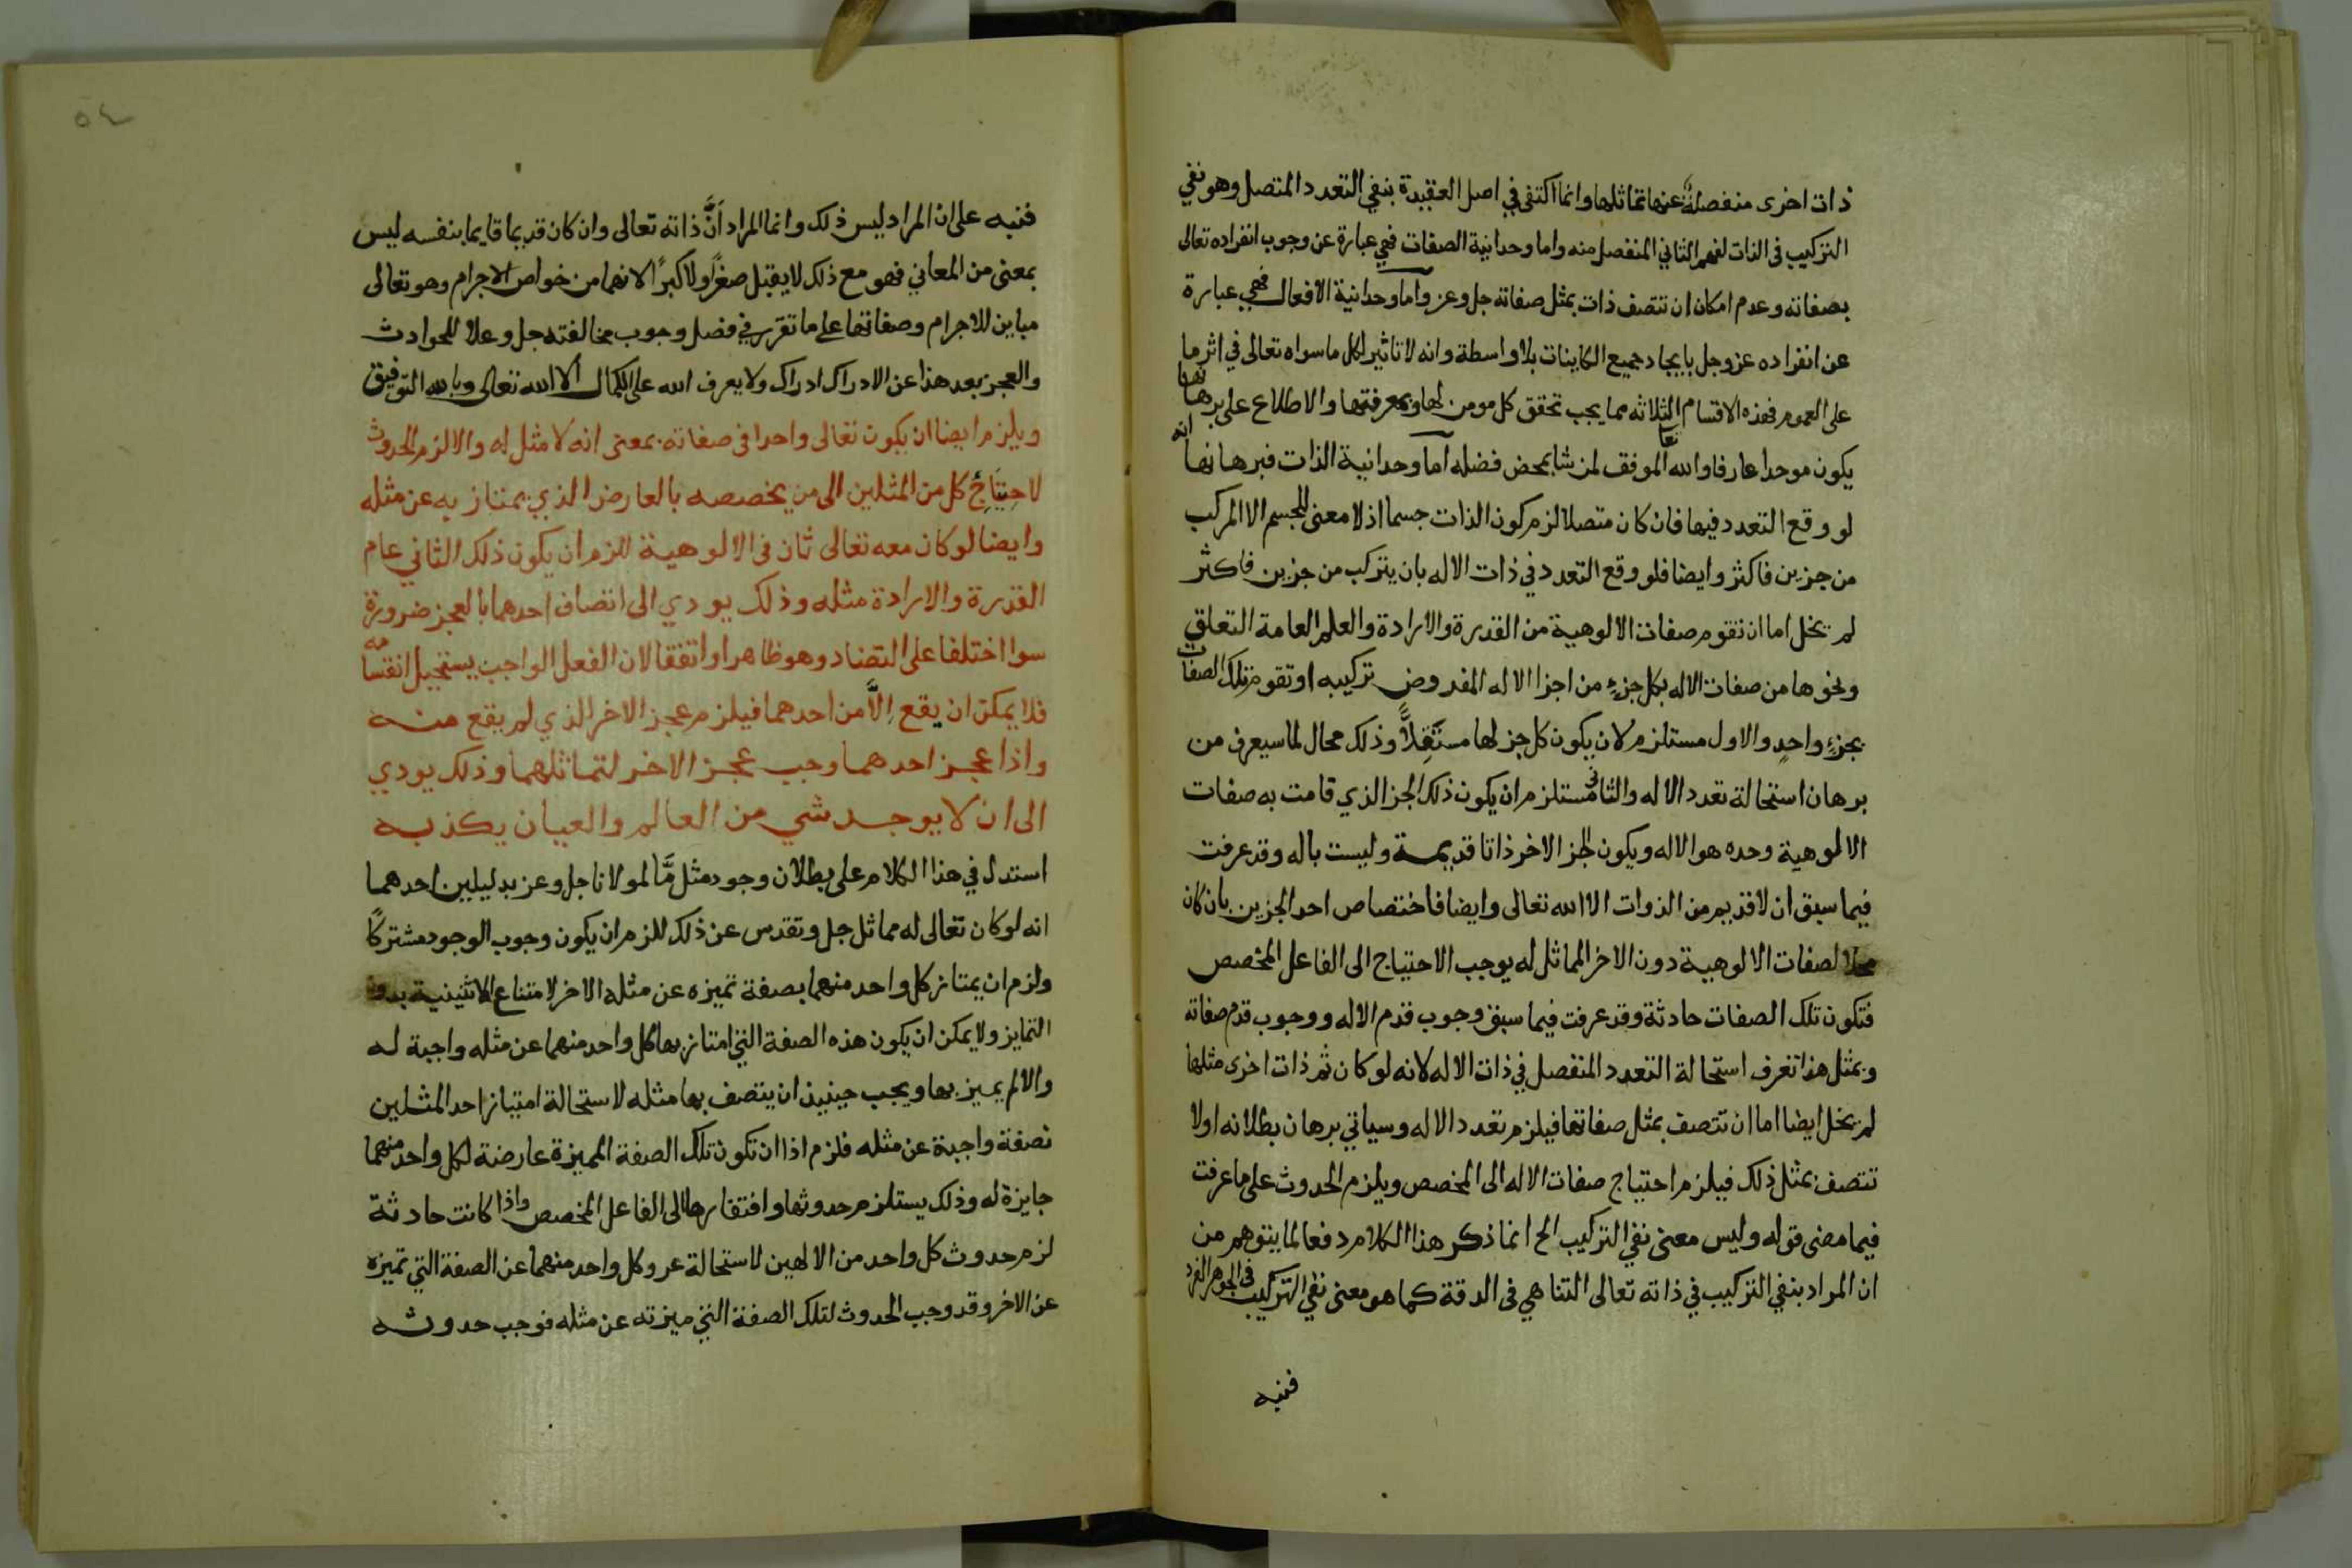 ذات اخرى منفصلة عنها تماثلها وانما اكتفى في اصل العقيدة بنفي التعدد المتصل وهو نفي
التركيب فى الذات لفهم الثاني المنفصل منه واما وحدانية الصفات فهي عبارة عن وجوب انفراده تعالى
بصفاته وعدم امكان ان تتصف ذات بمثل صفاته جل وعز واما وحدانية الافعال فهي عبارة
عن انفراده عز وجل بايجاد جميع الكاينات بلا واسطة وانه لا تاثير لكل ما سواه تعالى في اثر ما
على العموم فهذه الاقسام الثلاثه مما يجب تحقق كل مومن لها وبمعرفتها والاطلاع على برهانها
يكون موحدا عارفا والله تعا الموفق لمن شا بمحض فضله اما وحدانية الذات فبرهانها انه
لو وقع التعدد فيها فان كان متصلا لزم كون الذات جسما اذ لا معنى للجسم الا المركب
من جزين فاكثر وايضا فلو وقع التعدد في ذات الاله بان يتركب من جزين فاكثر
لم يخل اما ان تقوم صفات الالوهية من القدرة والارادة والعلم العامة التعلق
ونحوها من صفات الاله بكل جزء من اجزا الاله المفروض تركيبه او تقوم تلك الصفات
بجزء واحد والاول مستلزم لان يكون كل جز لها مستقلا وذلك محال لما سيعرف من
برهان استحالة تعدد الاله والثانى مستلزم ان يكون ذلك الجز الذي قامت به صفات
الالوهية وحده هو الاله ويكون الجز الاخر ذاتا قديمة وليست باله وقد عرفت
فيما سبق ان لا قديم من الذوات الا الله تعالى وايضا فاختصاص احد الجزين بان كان
محلا لصفات الالوهية دون الاخر المماثل له يوجب الاحتياج الى الفاعل المخصص
فتكون تلك الصفات حادثة وقد عرفت فيما سبق وجوب قدم الاله ووجوب قدم صفاته
وبمثل هذا تعرف استحالة التعدد المنفصل في ذات الاله لانه لو كان ثم ذات اخرى مثلها
لم يخل ايضا اما ان تتصف بمثل صفاتها فيلزم تعدد الاله وسياتي برهان بطلانه اولا
تتصف بمثل ذلك فيلزم احتياج صفات الاله الى المخصص ويلزم الحدوث على ما عرفت
فيما مضى قوله وليس معنى نفي التركيب الخ انما ذكر هذا الكلام دفعا لما يتوهم من
ان المراد بنفي التركيب في ذاته تعالى التناهي فى الدقة كما هو معنى نفي التركيب فى الجوهر الفرد
فنبه
٥٤
فنبه على ان المراد ليس ذلك وانما المراد اَنَّ ذاته تعالى وان كان قديما قايما بنفسه ليس
بمعنى من المعاني فهو مع ذلك لا يقبل صغرًا ولا كبرًا لانهما من خواص الاجرام وهو تعالى
مباين للاجرام وصفاتها على ما تقرر في فصل وجوب مخالفته جل وعلا للحوادث
والعجز بعد هذا عن الادراك ادراك ولا يعرف الله على الكمال الا الله تعالى وبالله التوفيق
ويلزم ايضا ان يكون تعالى واحدا فى صفاته بمعنى انه لا مثل له والا لزم الحدوث
لاحتياج كل من المثلين الى من يخصصه بالعارض الذي يمتاز به عن مثله
وايضا لو كان معه تعالى ثان فى الالوهية للزم ان يكون ذلك الثاني عام
القدرة والارادة مثله وذلك يودي الى اتصاف احدهما بالعجز ضرورة
سوا اختلفا على التضاد وهو ظاهر او اتفقا لان الفعل الواجب يستحيل انقسامه
فلا يمكن ان يقع اِلَّا من احدهما فيلزم عجز الاخر الذي لم يقع منه
واذا عجز احدهما وجب عجز الاخر لتماثلهما وذلك يودي
الى ان لا يوجد شي من العالم والعيان يكذبه
استدل في هذا الكلام على بطلان وجود مثل مَّا لمولانا جل وعز بدليلين احدهما
انه لو كان تعالى له مماثل جل وتقدس عن ذلك للزم ان يكون وجوب الوجود مشتركًا
ولزم ان يمتاز كل واحد منهما بصفة تميزه عن مثله الاخر لامتناع الاثنينية بدون
التمايز ولا يمكن ان يكون هذه الصفة التي امتاز بها كل واحد منهما عن مثله واجبة له
والا لم يميز بها ويجب حينيذ ان يتصف بها مثله لاستحالة امتياز احد المثلين
بصفة واجبة عن مثله فلزم اذا ان تكون تلك الصفة المميزة عارضة لكل واحد منهما
جايزة له وذلك يستلزم حدوثها وافتقارها الى الفاعل المخصص واذا كانت حادثة
لزم حدوث كل واحد من الالهين لاستحالة عرو كل واحد منهما عن الصفة التي تميزه
عن الاخر وقد وجب الحدوث لتلك الصفة التي ميزته عن مثله فوجب حدوثه